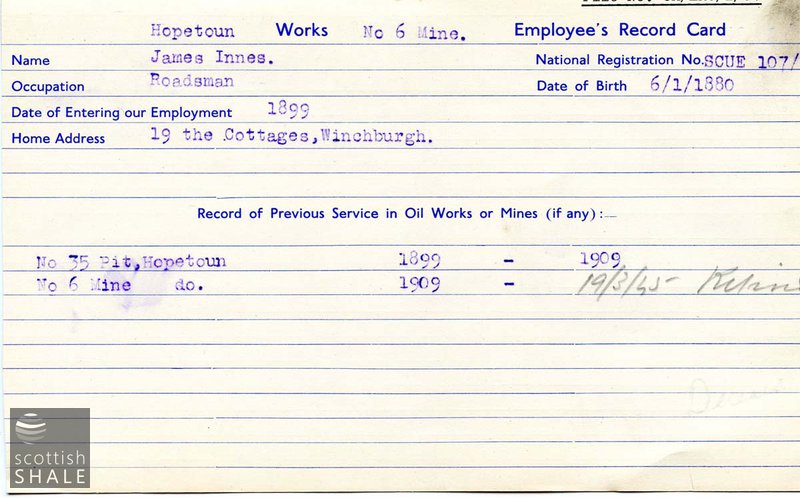 Hopetoun Works No 6 Mine. Employee's Record Card
Name James Innes. National Registration No. SCUE 107/
Occupation Roadsman Date of Birth 6/1/1880
Date of Entering our Employment 1899
Home Address 19 the Cottages, Winchburgh.
Record of Previous Service in Oil Works or Mines (if any):—
No 35 Pit, Hopetoun 1899 - 1909
No 6 Mine do. 1909 - 19/3/45
scottish
SHALE